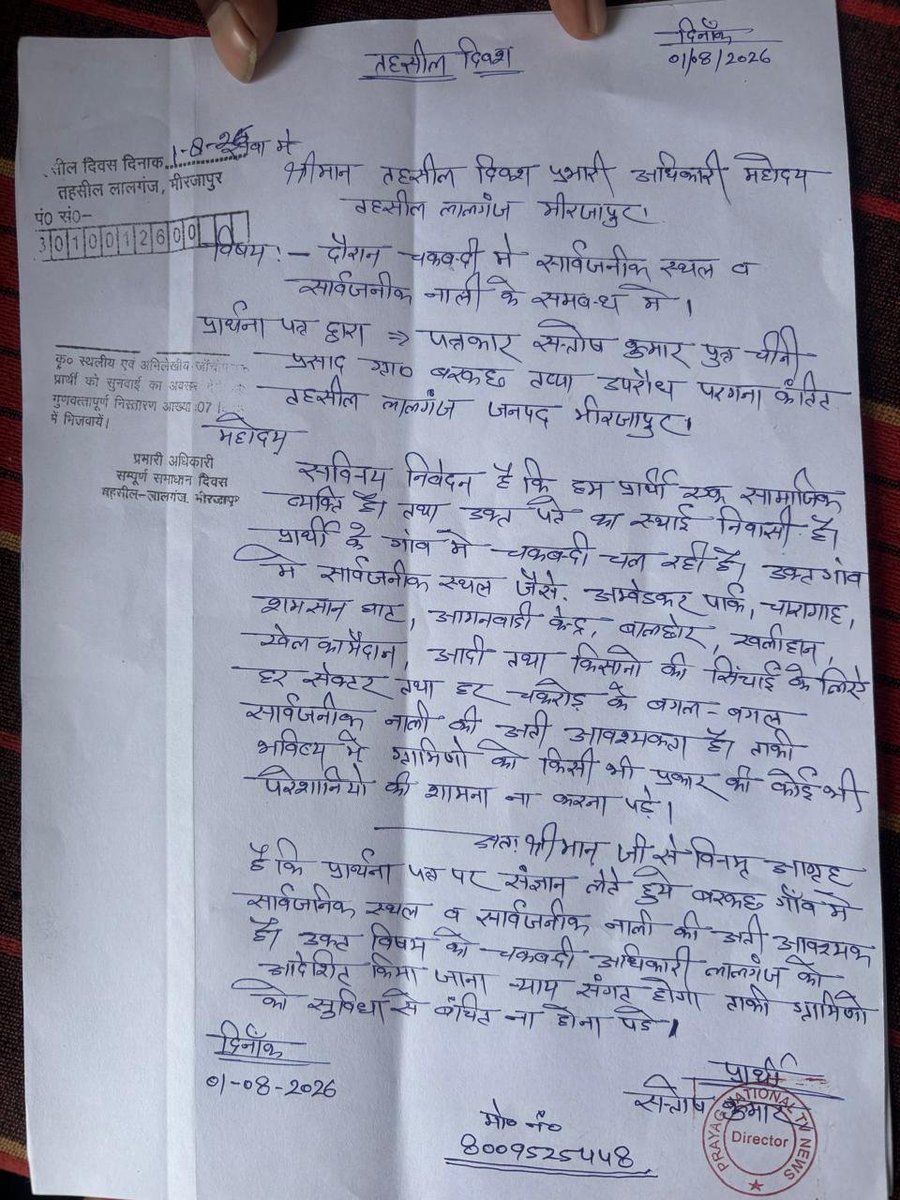 तहसील दिवश
दिनाँक
01/08/2026
तहसील दिवस दिनाक 1-8-26
तहसील लालगंज, मीरजापुर
पं० सं०-
30100012600
सेवा मे
श्रीमान तहसील दिवश प्रभारी अधिकारी महोदय
तहसील लालगंज मीरजापुर।
विषय :- दौरान चकबन्दी मे सार्वजनीक स्थल व
सार्वजनीक नाली के समबन्ध मे।
प्रार्थना पत्र द्वारा ⇒ पत्रकार सन्तोष कुमार पुत्र चीनी
प्रसाद ग्रा० बरकछ तप्पा उपरौध परगना कंतित
तहसील लालगंज जनपद मीरजापुर।
कृ० स्थलीय एवं अभिलेखीय जाँच
प्रार्थी को सुनवाई का अवसर
गुणवत्तापूर्ण निस्तारण आख्या 07
में भिजवायें।
प्रभारी अधिकारी
सम्पूर्ण समाधान दिवस
तहसील-लालगंज, मीरजापुर
महोदय
सविनय निवेदन है कि हम प्रार्थी एक सामाजिक
व्यक्ति है। तथा उक्त पते का स्थाई निवासी है।
प्रार्थी के गांव मे चकबन्दी चल रही है। उक्त गांव
मे सार्वजनीक स्थल जैसे. अम्वेडकर पार्क, चारागाह,
शमसान घाट, आगनवाडी केन्द्र, बालछोर, खलीहान,
खेल का मैदान, आदी तथा किसानो की सिंचाई के लिऐ
हर सेक्टर तथा हर चकरोड़ के बगल-बगल
सार्वजनीक नाली की अती आवश्यकता है। ताकी
भविष्य मे ग्रामिणो को किसी भी प्रकार की कोई भी
परेशानियो की शामना ना करना पड़े।
अतः श्रीमान् जी से विनम्र आग्रह
है कि प्रार्थना पत्र पर संज्ञान लेते हुये बरकछ गाँव मे
सार्वजनिक स्थल व सार्वजनीक नाली की अती आवश्यक
है। उक्त विषय को चकबन्दी अधिकारी लालगंज को
आदेशित किया जाना न्याय संगत होगा ताकी ग्रामिणो
को सुविधा से बंचित ना होना पडे।
दिनाँक
01-08-2026
प्रार्थी
सन्तोष कुमार
मो० नं०
8009525448
PRAYAG NATIONAL TV NEWS
Director